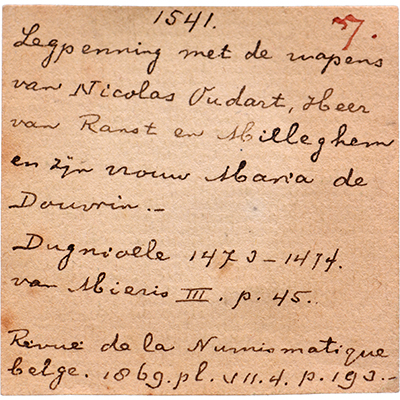 1541. 7.
Legpenning met de wapens
van Nicolas Oudart, Heer
van Ranst en Milleghem
en zijn vrouw Maria de
Douvrin. -
Dugniolle 1473 - 1474.
van Mieris III. p. 45.
Revue de la Numismatique
belge. 1869. pl. VII. 4. p. 193. -